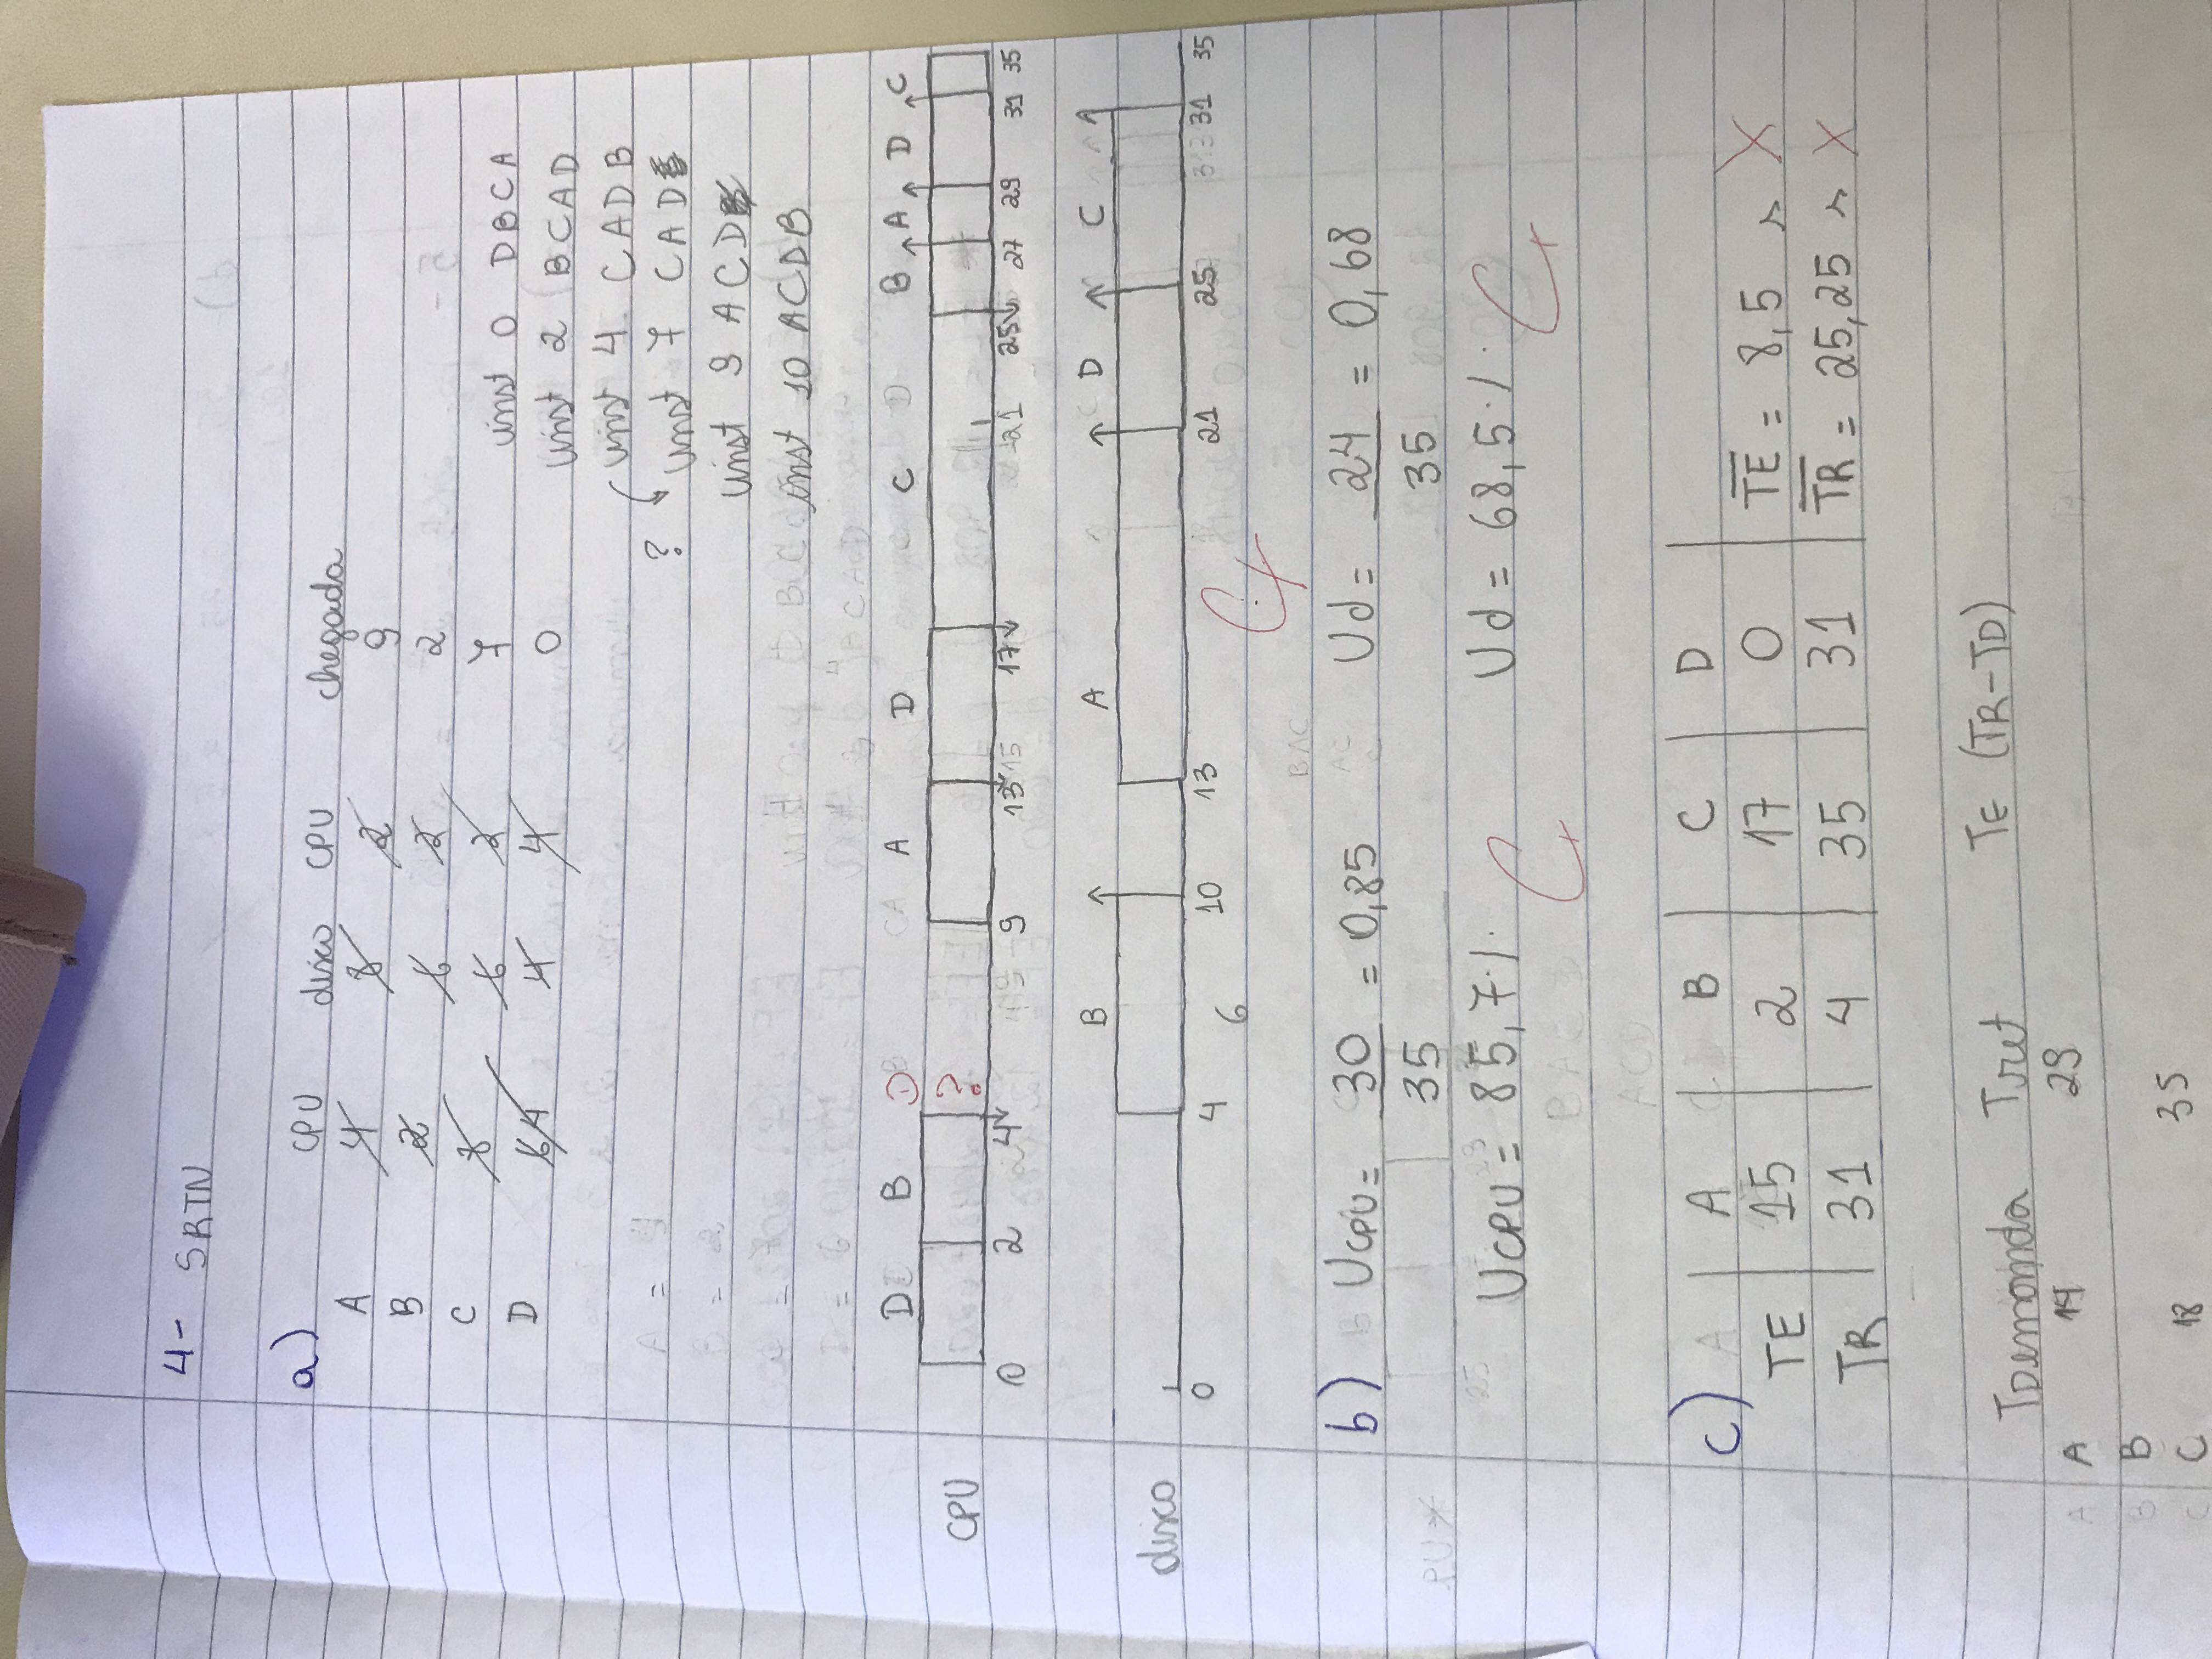 4- SRTN
a) CPU disco CPU chegada
A 4 8 2 9
B 2 6 2 2
C 8 6 2 7
D 6 4 4 4 0
inst 0 DBCA
inst 2 BCAD
inst 4 CADB
? inst 7 CAD
inst 9 ACD
inst 10 ACDB
D B D A D C B A D C
CPU ?
0 2 4 9 13 17 21 25 27 29 31 35
B A D C
disco
0 4 10 13 21 25 31 35
6
C
b) UCPU = 30/35 = 0,85 Ud = 24/35 = 0,68
UCPU = 85,7% C Ud = 68,5% C
c) A B C D
TE 15 2 17 0 TE = 8,5 s X
TR 31 4 35 31 TR = 25,25 s X
TDemanda Tret TE (TR-TD)
A 14 29
B
C 18 35